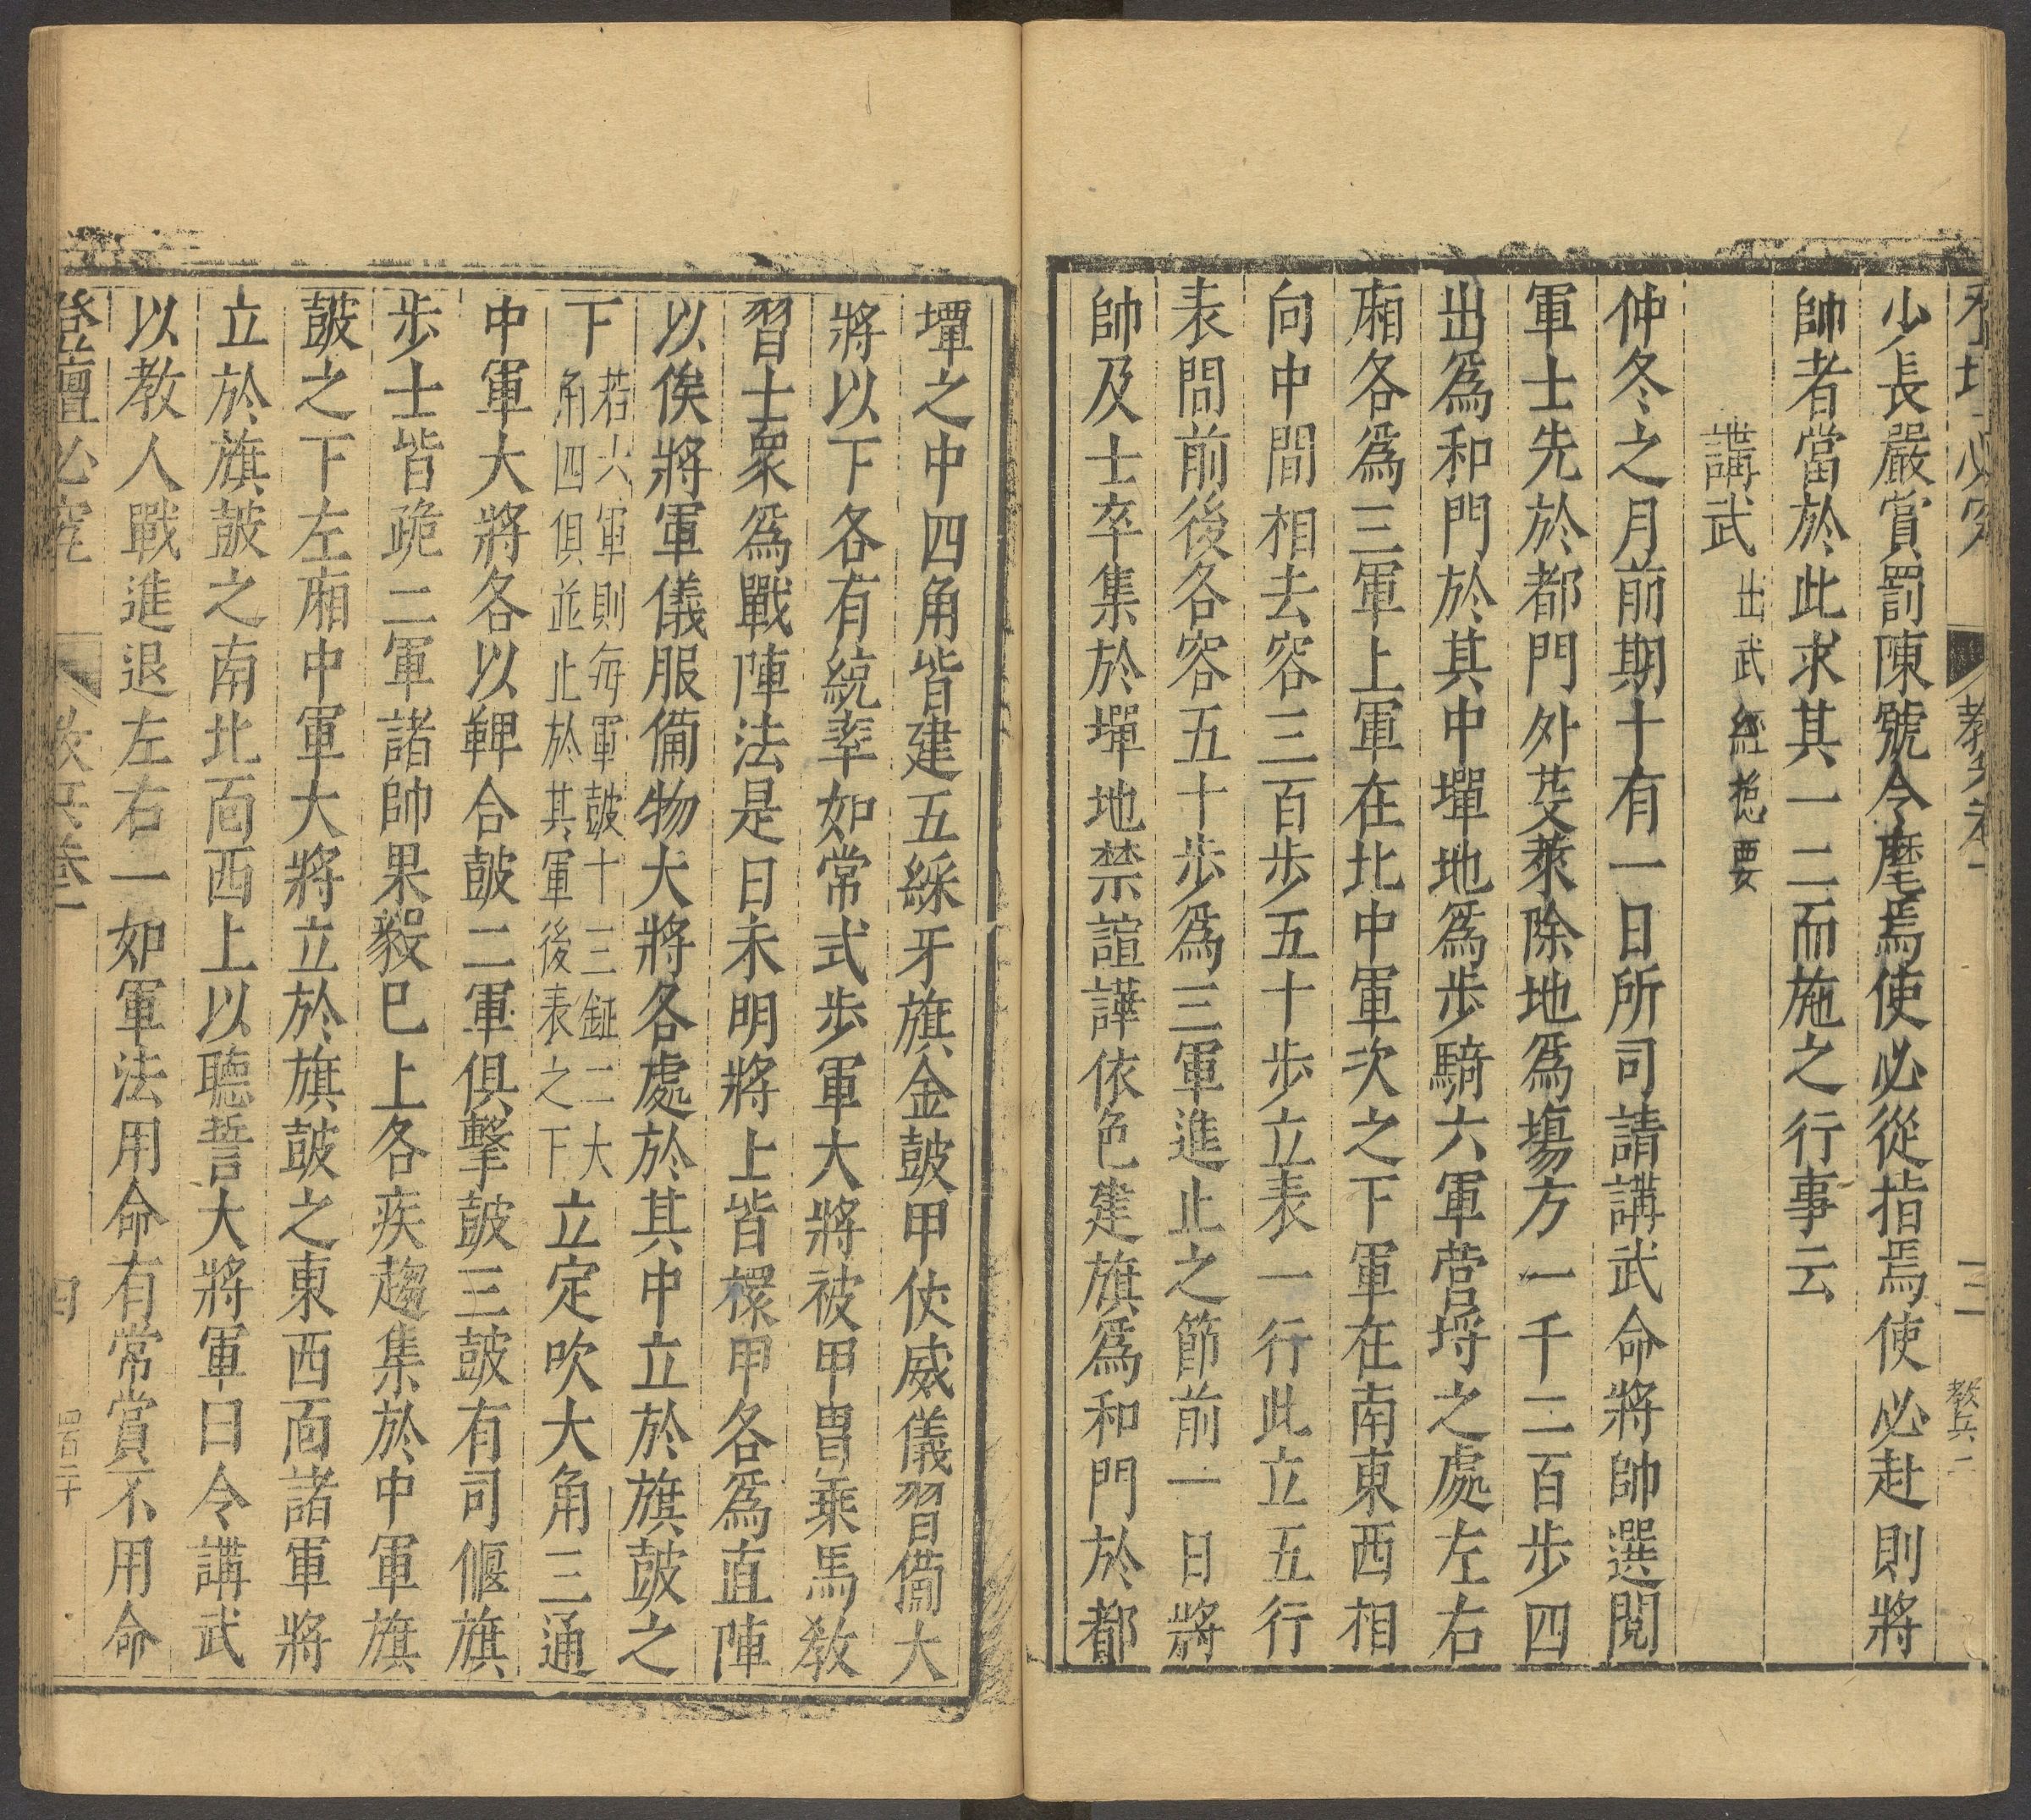 少長嚴賞罰陳號令麾焉使必從指焉使必赴則將
帥者當於此求其一二而施之行事云
講武 出武經摠要
仲冬之月前期十有一日所司請講武命將帥選閱
軍士先於都門外芟萊除地爲塲方一千二百步四
出爲和門於其中墠地爲步騎六軍營埒之處左右
廂各爲三軍上軍在北中軍次之下軍在南東西相
向中間相去容三百步五十步立表一行此立五行
表間前後各容五十步爲三軍進止之節前一日將
帥及士卒集於墠地禁諠譁依色建旗爲和門於都
墠之中四角皆建五綵牙旗金皷甲仗威儀習備大
將以下各有統率如常式步軍大將被甲胄乘馬教
習士衆爲戰陣法是日未明將上皆擐甲各爲直陣
以俟將軍儀服備物大將各處於其中立於旗皷之
下若六軍則每軍皷十三鉦二大角四俱並止於其軍後表之下立定吹大角三通
中軍大將各以鞞合皷二軍俱擊皷三皷有司偃旗
步士皆跪二軍諸帥果毅巳上各疾趨集於中軍旗
皷之下左廂中軍大將立於旗皷之東西面諸軍將
立於旗皷之南北面西上以聽誓大將軍曰今講武
以教人戰進退左右一如軍法用命有常賞不用命
登壇必究 教兵卷一 四